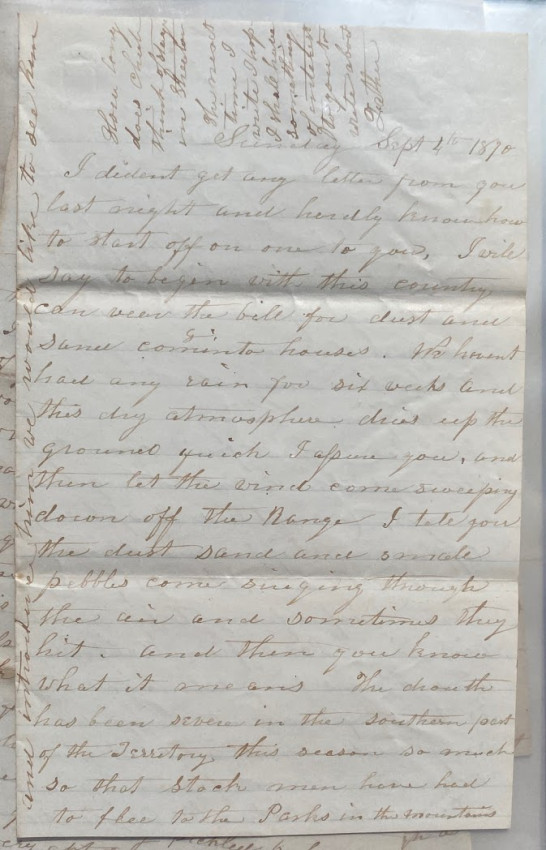 Sunday Sept 4th 1870
I dident get any letter from you
last night and hardly know how
to start off on one to you, I will
say to begin with this country
can wear the bell for dust and
sand coming into houses. We havent
had any rain for six weeks and
this dry atmosphere dries up the
ground quick I assure you, and
then let the wind come sweeping
down off the Range I tell you
the dust sand and small
pebbles come singing through
the air and sometimes they
hit. and then you know
what it means The drouth
has been severe in the southern part
of the Territory this season so much
so that Stock men have had
to flee to the Parks in the mountains
and introduce him we would like to see him
How long
does Chell
think of stay
in
The next
time I
write I hope
I shall have
something
of interest
to you to
write about
Father